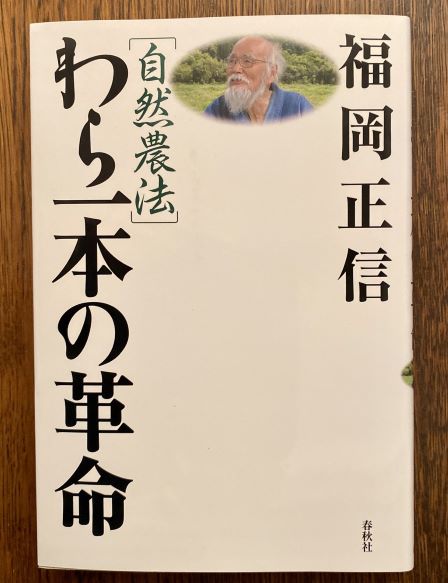 福岡正信
[自然農法]
わら一本の革命
春秋社